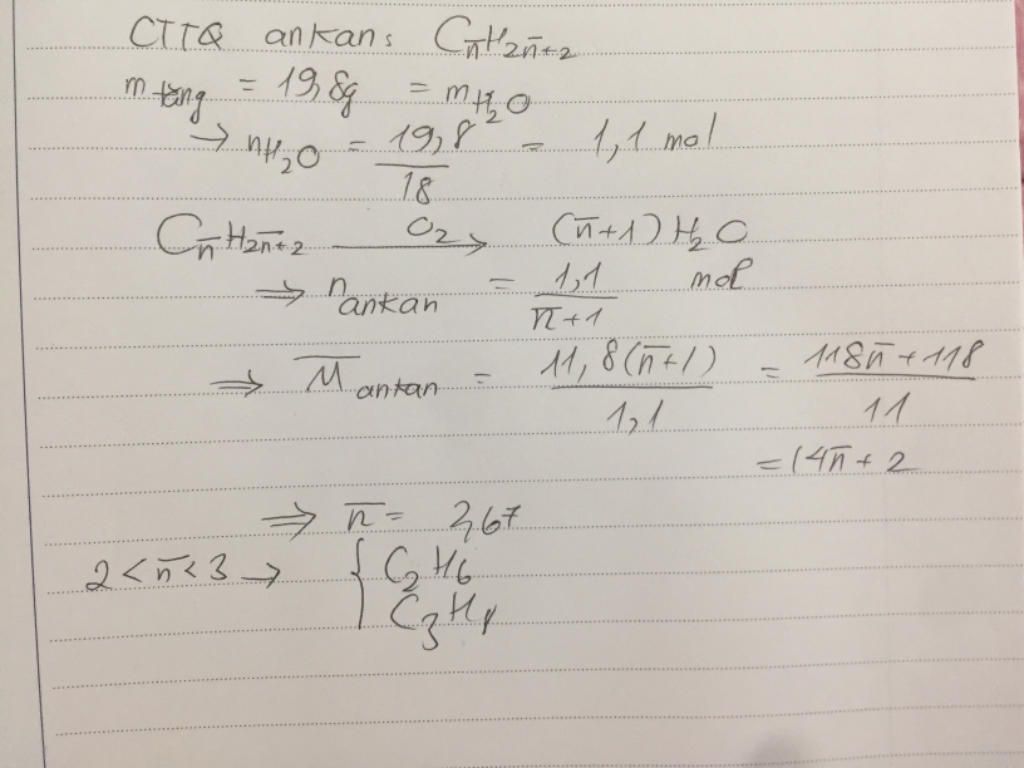 CTTQ ankan: Cn̅H2n̅+2
m tăng = 19,8g = mH2O
→ nH2O = 19,8/18 = 1,1 mol
Cn̅H2n̅+2 —O2→ (n̅+1)H2O
⇒ nankan = 1,1/(n̅+1) mol
⇒ M̅ankan = 11,8(n̅+1)/1,1 = (118n̅+118)/11
= 14n̅+2
⇒ n̅ = 2,67
2 < n̅ < 3 → { C2H6
C3H8